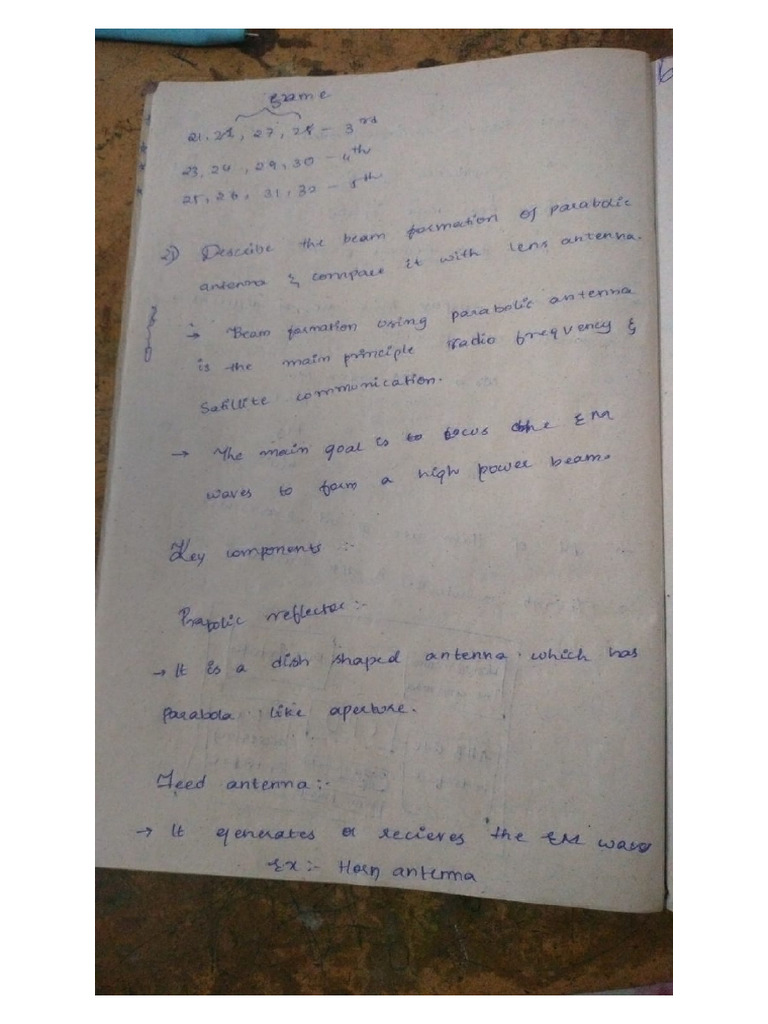 same
21,22, 27, 28 - 3rd
23,24, 29,30 - 4th
25,26, 31,32 - 5th
2) Describe the beam formation of parabolic
antenna & compare it with lens antenna.
→ Beam formation using parabolic antenna
is the main principle radio freqvency &
Satillite communication.
→ The main goal is to focus the EM
waves to form a high power beam.
Key components :-
Prabolic reflector:-
→ It is a dish shaped antenna which has
parabola like aperture.
Feed antenna:-
→ It generates or recieves the EM wave
Ex:- Horn antenna